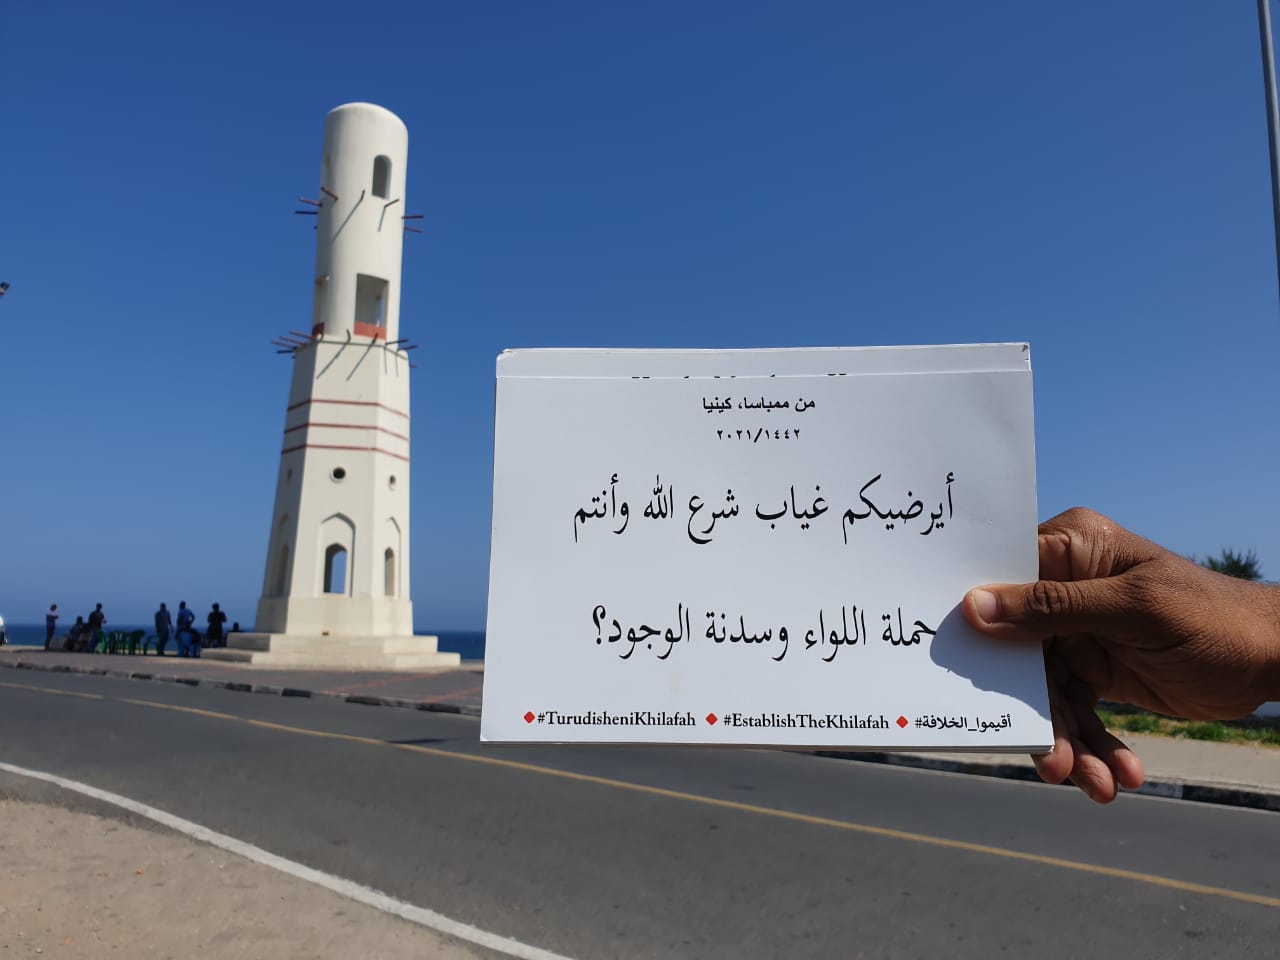 من ممباسا، كينيا
٢٠٢١/١٤٤٢
أيرضيكم غياب شرع الله وأنتم
حملة اللواء وسدنة الوجود؟
#TurudisheniKhilafah ♦ #EstablishTheKhilafah ♦ #أقيموا_الخلافة